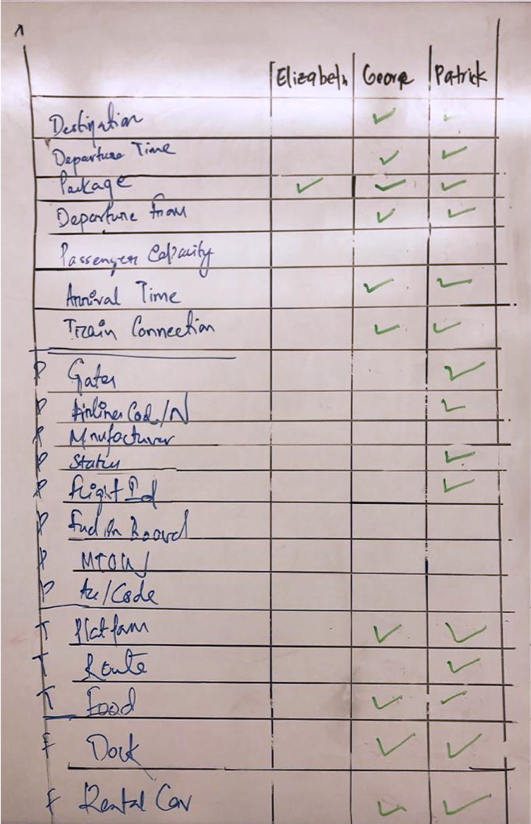 Elizabeth George Patrick
Destination ✓ ✓
Departure Time ✓ ✓
Package ✓ ✓ ✓
Departure from ✓ ✓
Passenger Capacity
Arrival Time ✓ ✓
Train Connection ✓ ✓
P Gates ✓
P Airlines Cod/N ✓
P Mnufacturer
P Status ✓
P Flight Id ✓
P Fuel On Board
P MTOW
P Code
T Platform ✓ ✓
T Route ✓
T Food ✓ ✓
F Dock ✓ ✓
F Rental Car ✓ ✓